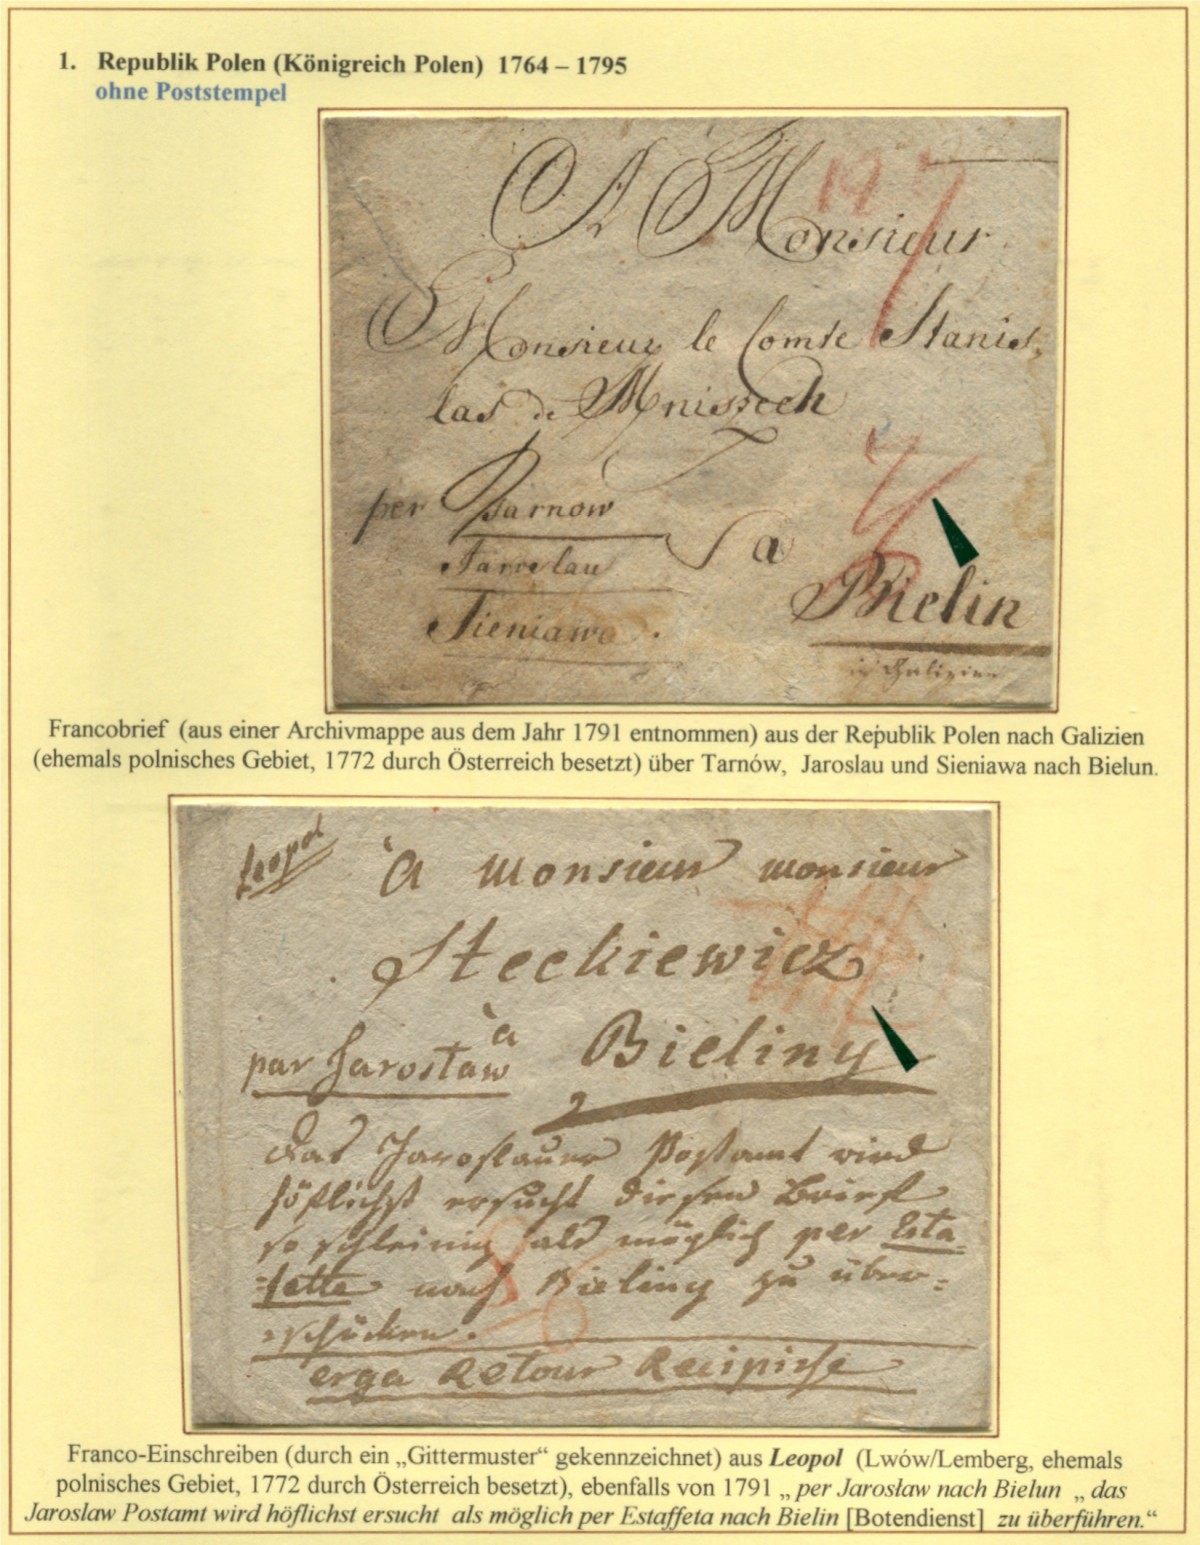 1. Republik Polen (Königreich Polen) 1764 – 1795
ohne Poststempel
A Monsieur
Monsieur le Comte Stanis
las de Mniszech
per Tarnow
Jaroslau
Sieniawa.
a
Bielin
in Galizien
Francobrief (aus einer Archivmappe aus dem Jahr 1791 entnommen) aus der Republik Polen nach Galizien
(ehemals polnisches Gebiet, 1772 durch Österreich besetzt) über Tarnów, Jaroslau und Sieniawa nach Bielun.
Leopol
à Monsieur monsieur
Steckiewicz
à Bieliny
par Jarosław
das Jaroslauer Postamt wird
höflichst ersucht diesen Brief
so schleinig als möglich per Esta-
fette nach Bieliny zu über-
schicken.
erga Retour Recipisse
Franco-Einschreiben (durch ein „Gittermuster“ gekennzeichnet) aus Leopol (Lwów/Lemberg, ehemals
polnisches Gebiet, 1772 durch Österreich besetzt), ebenfalls von 1791 „ per Jarosław nach Bielun „ das
Jaroslaw Postamt wird höflichst ersucht als möglich per Estaffeta nach Bielin [Botendienst] zu überführen.“